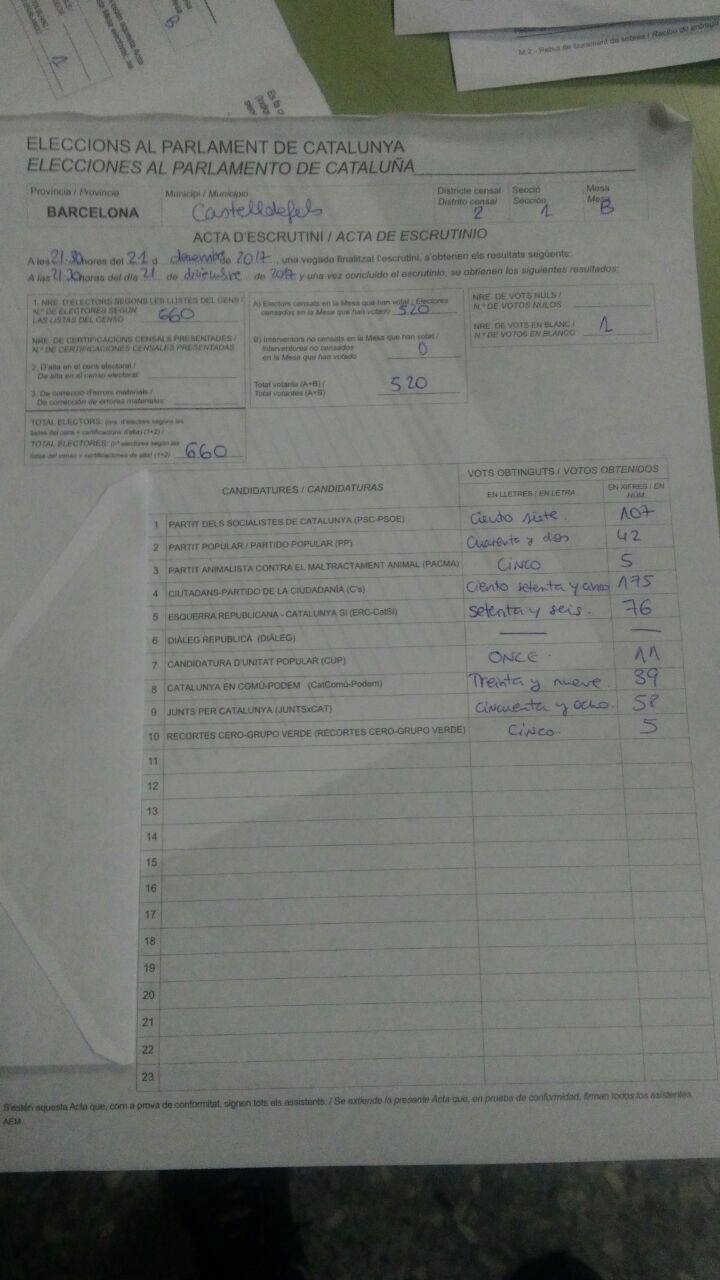 M.2 - Rebut de lliurament de sobres / Recibo de entrega
B
1
ELECCIONS AL PARLAMENT DE CATALUNYA
ELECCIONES AL PARLAMENTO DE CATALUÑA
Província / Provincia
BARCELONA
Municipi / Municipio
Castelldefels
Districte censal
Distrito censal
2
Secció
Sección
1
Mesa
Mesa
B
ACTA D'ESCRUTINI / ACTA DE ESCRUTINIO
A les 21:30 hores del 21 d desembre de 2017, una vegada finalitzat l'escrutini, s'obtenen els resultats següents:
A las 21:30 horas del día 21 de diciembre de 2017 y una vez concluido el escrutinio, se obtienen los siguientes resultados:
1. NRE. D'ELECTORS SEGONS LES LLISTES DEL CENS /
N.º DE ELECTORES SEGÚN
LAS LISTAS DEL CENSO
660
NRE. DE CERTIFICACIONS CENSALS PRESENTADES /
N.º DE CERTIFICACIONES CENSALES PRESENTADAS
2. D'alta en el cens electoral /
De alta en el censo electoral:
3. De correcció d'errors materials /
De corrección de errores materiales:
TOTAL ELECTORS: (nre. d'electors segons les
llistes del cens + certificacions d'alta) (1+2) /
TOTAL ELECTORES: (nº electores según las
listas del censo + certificaciones de alta) (1+2) 660
A) Electors censats en la Mesa que han votat / Electores
censados en la Mesa que han votado 520
B) Interventors no censats en la Mesa que han votat /
Interventores no censados
en la Mesa que han votado 0
Total votants (A+B) /
Total votantes (A+B)
520
NRE. DE VOTS NULS /
N.º DE VOTOS NULOS
NRE. DE VOTS EN BLANC /
N.º DE VOTOS EN BLANCO
1
CANDIDATURES / CANDIDATURAS
VOTS OBTINGUTS / VOTOS OBTENIDOS
EN LLETRES / EN LETRA
EN XIFRES / EN NÚM.
1 PARTIT DELS SOCIALISTES DE CATALUNYA (PSC-PSOE) Ciento siete. 107
2 PARTIT POPULAR / PARTIDO POPULAR (PP) Cuarenta y dos 42
3 PARTIT ANIMALISTA CONTRA EL MALTRACTAMENT ANIMAL (PACMA) CINCO 5
4 CIUTADANS-PARTIDO DE LA CIUDADANÍA (C's) Ciento setenta y cinco 175
5 ESQUERRA REPUBLICANA - CATALUNYA SÍ (ERC-CatSí) Setenta y seis. 76
6 DIÀLEG REPUBLICÀ (DIÀLEG) — —
7 CANDIDATURA D'UNITAT POPULAR (CUP) ONCE. 11
8 CATALUNYA EN COMÚ-PODEM (CatComú-Podem) Treinta y nueve. 39
9 JUNTS PER CATALUNYA (JUNTSxCAT) Cincuenta y ocho. 58
10 RECORTES CERO-GRUPO VERDE (RECORTES CERO-GRUPO VERDE) CINCO. 5
11
12
13
14
15
16
17
18
19
20
21
22
23
S'estén aquesta Acta que, com a prova de conformitat, signen tots els assistents. / Se extiende la presente Acta que, en prueba de conformidad, firman todos los asistentes.
AEM